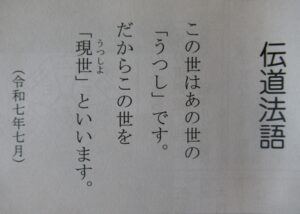 伝道法語
この世はあの世の
「うつし」です。
だからこの世を
「現世」といいます。
うつしよ
(令和七年七月)